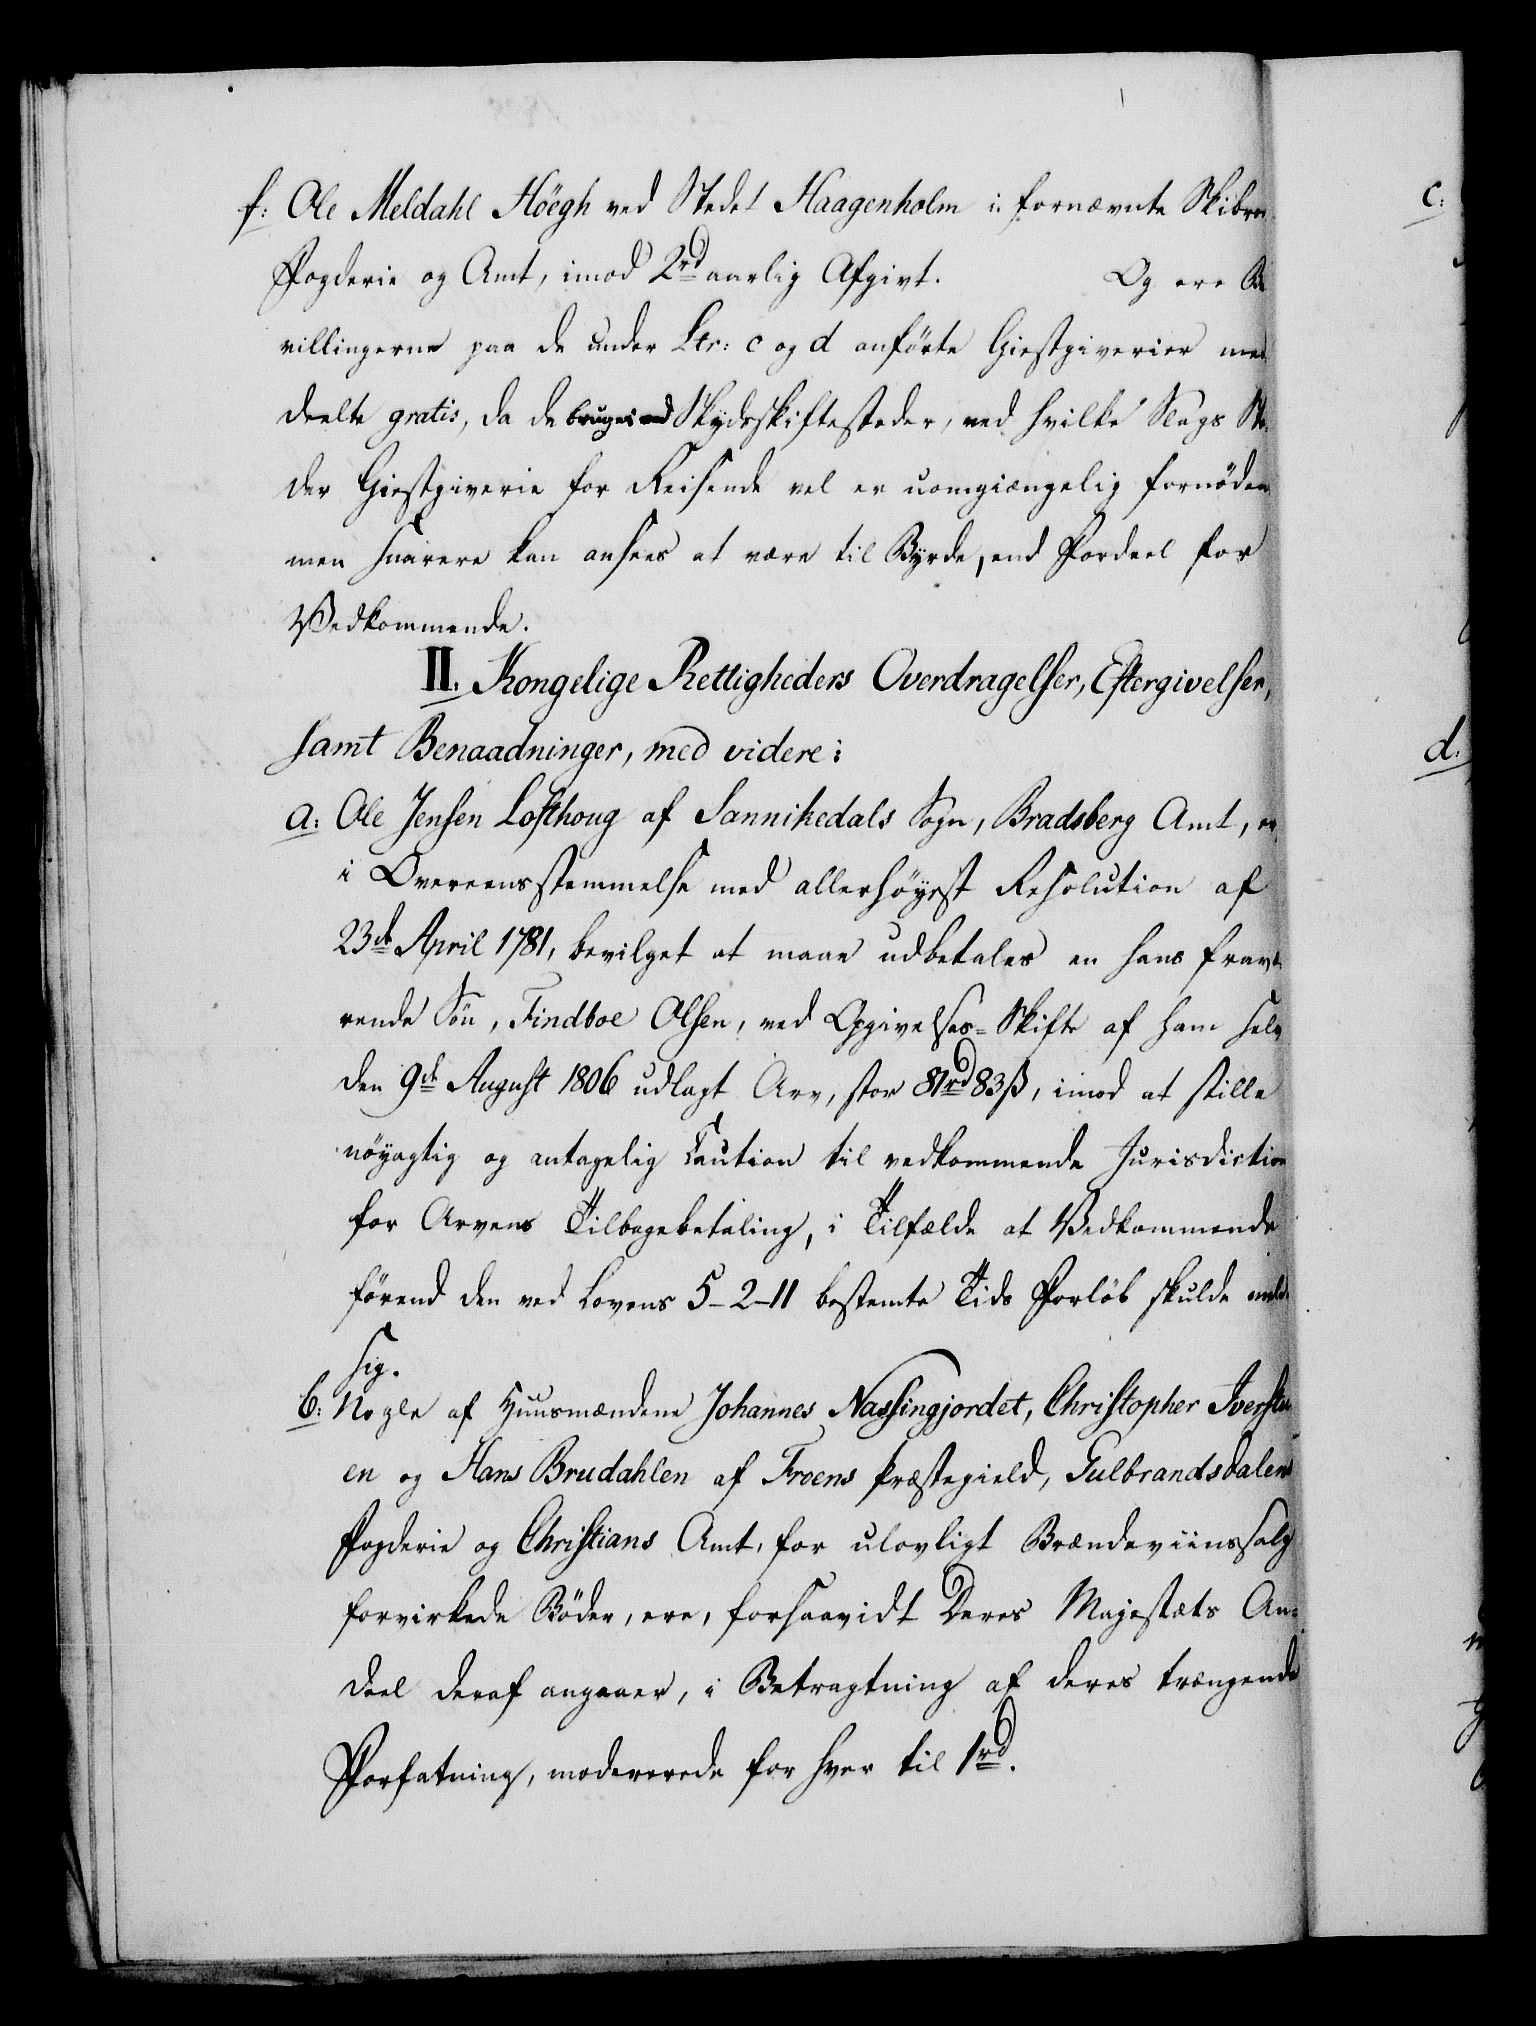 f: Ole Meldahl Höegh ved Stedet Haagenholm i fornævnte
Fogderie og Amt, imod 2rd aarlig Afgivt. Og ere Be
villingerne paa de under Ltr: c og d anförte Giestgiverier med
deelte gratis, da de bruges ved Skydsskiftesteder, ved hvilke Slags Ste
der Giestgiverie for Reisende vel er uomgiængelig fornöden
men snarere kan ansees at være til Byrde, end Fordeel for
Vedkommende.
II. Kongelige Rettigheders Overdragelser, Eftergivelser,
samt Benaadninger, med videre:
a: Ole Jensen Lofthoug af Sannikedals Sogn, Bradsberg Amt, er
i Overeensstemmelse med allerhöyest Resolution af
23de April 1781, bevilget at maae udbetales en hans fravæ
rende Sön, Findboe Olsen, ved Opgivelses-Skifte af ham selv
den 9de August 1806 udlagt Arv, stor 81rd 83ß, imod at stille
nöyagtig og antagelig Caution til vedkommende Jurisdiction
for Arvens Tilbagebetaling, i Tilfælde at Vedkommende
förend den ved Lovens 5-2-11 bestemte Tids Forlöb skulde melde
sig.
b: Nogle af Huusmændene Johannes Nassingjordet, Christopher Iverstu
en og Hans Brudahlen af Froens Præstegield, Gulbrandsdalens
Fogderie og Christians Amt, for ulovligt Brændeviinssalg
forvirkede Böder, ere, forsaavidt Deres Majestæts An-
deel deraf angaaer, i Betragtning af deres trængende
Forfatning, modererede for hver til 1rd.
c:
d: